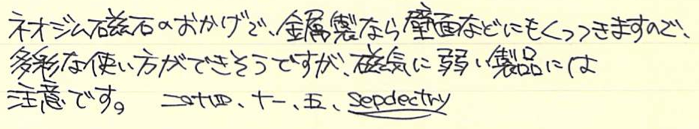 ネオジム磁石のおかげで、金属製なら壁面などにもくっつきますので、
多彩な使い方ができそうですが、磁気に弱い製品には
注意です。 二十四、十一、五、sepdectry